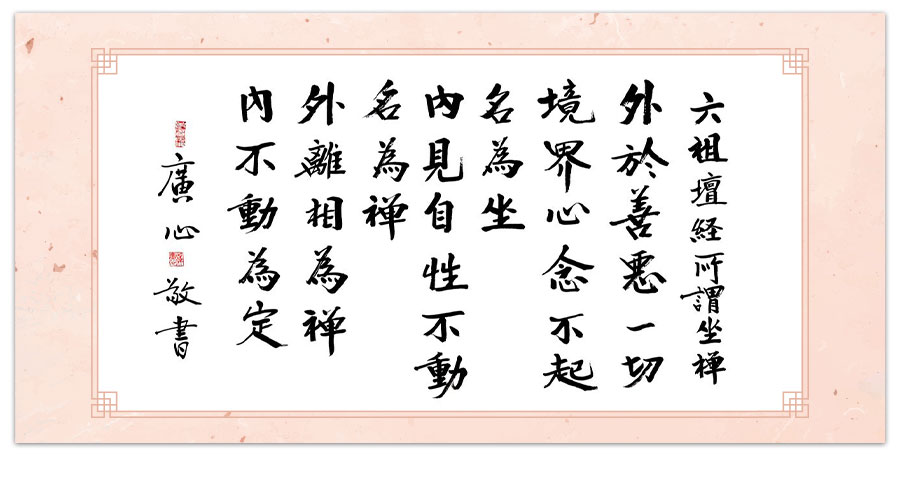 六祖壇経所謂坐禅
外於善悪一切
境界心念不起
名為坐
内見自性不動
名為禅
外離相為禅
内不動為定
廣心敬書